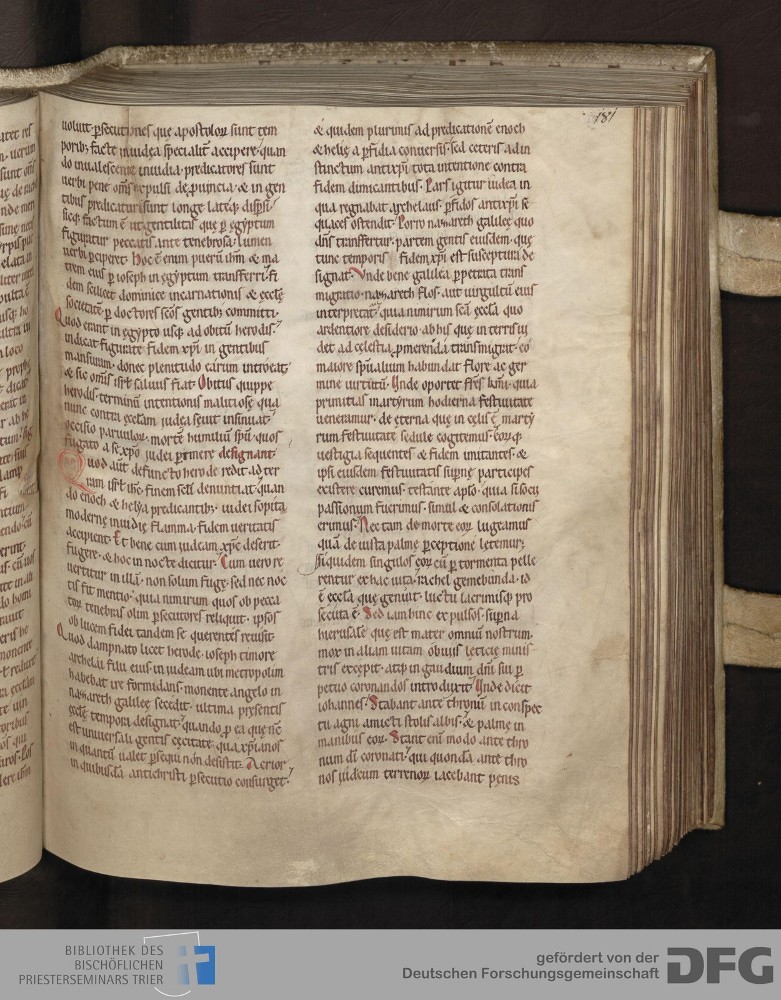 181
uoluit ꝑsecutiones que apostoloꝝ sunt tem
porib; facte in iudea specialit̄ accipere· quan
do inualescente inuidia· predicatores sunt
uerbi pene om̄s expulsi de ꝓuincia· & in gen
tibus predicaturi sunt longe lateq; disꝑsi·
sicq; factum ē ut gentilitas que ꝑ egyptum
figuratur peccatis ante tenebrosa· lumen
uerbi ꝑciperet· Hoc ē enim puerū ihm̄ & ma
trem eius ꝑ ioseph in egyptum transferri· fi
dem scilicet dominice incarnationis & eccl̄e
societatē ꝑ doctores sc̄os gentib; committi·
Quod erant in egypto usq; ad obitū herodis·
indicat figurate fidem xp̄i in gentibus
mansuram· donec plenitudo earum introeat·
& sic om̄is isrl̄ saluus fiat· Obitus quippe
herodis· terminū intentionis malitiosę qua
nunc contra eccl̄am iudea seuit insinuat·
occisio paruuloꝝ· mortē humiliū sp̄u· quos
fugato a se xp̄o iudei ꝑimere designant·
Quod aut̄ defuncto herode redit ad ter
ram isrl̄ ihc· finem sc̄li denuntiat· quan
do enoch & helya predicantib;· iudei sopita
modernę inuidię flamma· fidem ueritatis
accipient· Et bene cum iudeam xp̄c deserit·
fugere· & hoc in nocte dicitur· Cum uero re
uertitur in illā· non solum fugę· sed nec noc
tis fit mentio· quia nimirum quos ob pecca
toꝝ tenebras olim ꝑsecutores reliquit· ipsos
ob lucem fidei tandem se querentes reuisit·
Quod dampnato licet herode· ioseph timore
archelai filii eius in iudeam ubi metropolim
habebat ire formidans· monente angelo in
nazareth galileę secedit· ultima pręsentis
eccl̄ę tempora designat· quando ꝑ ea que nc̄
est uniuersali gentis cecitate· qua xp̄ianos
in quantū ualet ꝑsequi non desistit· Acrior
in quibusdā antichristi ꝑsecutio consurget·
& quidem plurimis ad predicationē enoch
& helię a ꝑfidia conuersis· sed ceteris ad in
stinctum antixp̄i tota intentione contra
fidem dimicantibus· Pars igitur iudea in
qua regnabat archelaus· ꝑfidos antixp̄i se
quaces ostendit· Porro nazareth galileę quo
dn̄s transfertur· partem gentis eiusdem· que
tunc temporis fidem xp̄i est susceptura de
signat· Vnde bene galilea ꝑpetrata trans
migratio· nazareth flos· aut uirgultū eius
interpretat̄· quia nimirum sc̄a eccl̄a quo
ardentiore desiderio· ab his que in terris ui
det ad cęlestia ꝓmerenda transmigrat· eo
maiore sp̄ualium habundat flore ac ger
mine uirtutū· Unde oportet frēs km̄i· quia
primitias martyrum hodierna festiuitate
ueneramur· de ęterna que in cęlis ē martȳ
rum festiuitate sedule cogitemus· eoꝝq;
uestigia sequentes & fidem imitantes· &
ipsi eiusdem festiuitatis supnę participes
existere curemus· testante ap̄lo· quia si socii
passionum fuerimus· simul & consolationis
erimus· Nec tam de morte eoꝝ lugeamus
quā de iusta palmę ꝑceptione lętemur;
Siquidem singulos eoꝝ cū ꝑ tormenta pelle
rentur ex hac uita· rachel gemebunda· id
ē eccl̄a que genuit· luctu lacrimisq; pro
secuta ē· Sed iam hinc expulsos· supna
hierusalē que est mater omniū nostrum·
mox in aliam uitam obuiis lęticię minis
tris excepit· atq; in gaudium dn̄i sui ꝑ
petuo coronandos introduxit· Unde dicit
iohannes· Stabant ante thronū in conspec
tu agni amicti stolis albis· & palmę in
manibus eoꝝ· Stant eni modo ante thro
num dī coronati· qui quondā ante thro
nos iudicum terrenoꝝ iacebant pęnis
BIBLIOTHEK DES
BISCHÖFLICHEN
PRIESTERSEMINARS TRIER
gefördert von der
Deutschen Forschungsgemeinschaft
DFG